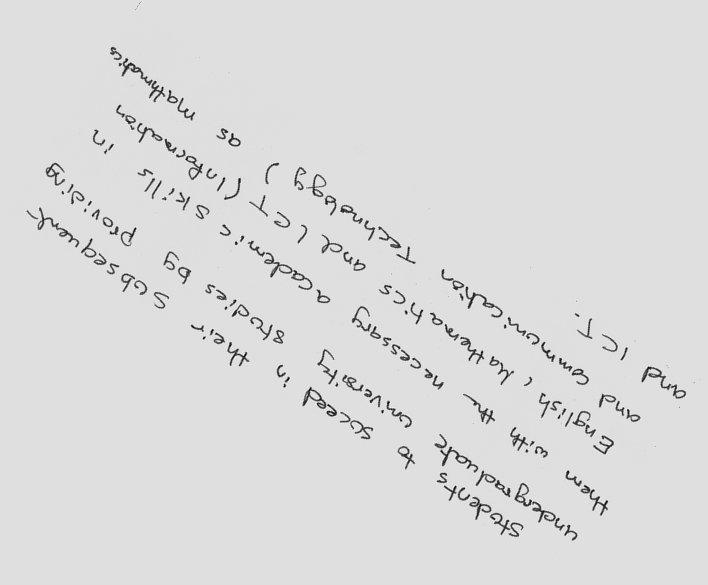 Students to succeed in their subsequent
undergraduate university studies by providing
them with the necessary academic skills in
English, Mathematics and ICT (Information
and Communication Technology) as mathmatics
and ICT.